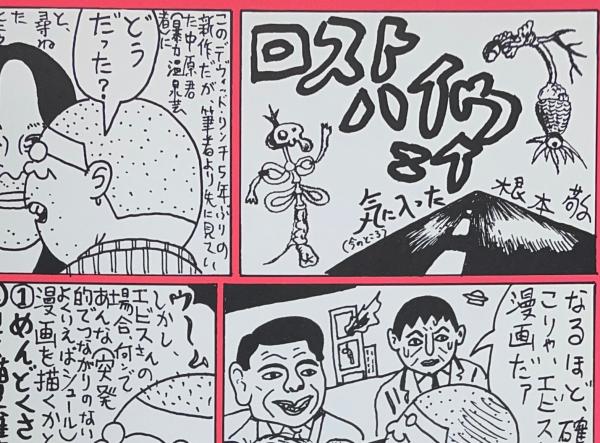 ロスト
ハイウ
ェイ
根本敬
気に入った
(今のところ)
このデヴィッド・リンチ5年ぶりの
新作だが筆者より先に見てい
た中原君
(暴力温泉芸
者)に
どう
だった?
と、
尋ね
た
なるほど確
こりゃ、エビス
漫画だァ
ウ〜
しかし、
エビスさんの
場合、何で
あんな(突発
的でつながりのない
よくいえばシュール)
漫画を描くかと
①めんどくさ